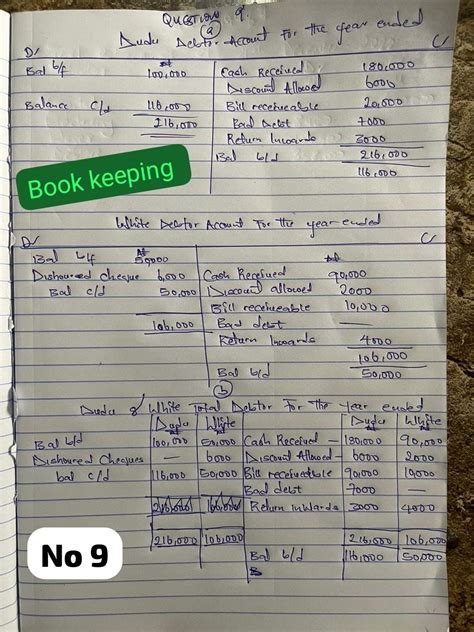 QUESTION 9
(a)
Dudu Debtor Account For the year ended
Dr Cr
Bal b/f 100,000 Cash Received 180,000
Discount Allowed 6000
Balance c/d 116,000 Bill receiveable 20,000
216,000 Bad Debt 7000
Return Inwards 3000
216,000
Bal b/d 116,000
Book keeping
White Debtor Account For the year ended
Dr Cr
Bal b/f 50,000
Dishoured Cheque 6,000 Cash Received 90,000
Bal c/d 50,000 Discount allowed 2000
Bill receiveable 10,000
106,000 Bad debt —
Return Inwards 4000
106,000
Bal b/d 50,000
(b)
Dudu & White Total Debtor For the Year ended
Dudu White Dudu White
Bal b/d 100,000 50,000 Cash Received — 180,000 90,000
Dishoured Cheques — 6000 Discount Allowed — 6000 2000
bal c/d 116,000 50,000 Bill receivable 20,000 10,000
Bad debt 7000 —
216,000 106,000 Return Inwards 3000 4000
216,000 106,000 216,000 106,000
Bal b/d 116,000 50,000
No 9